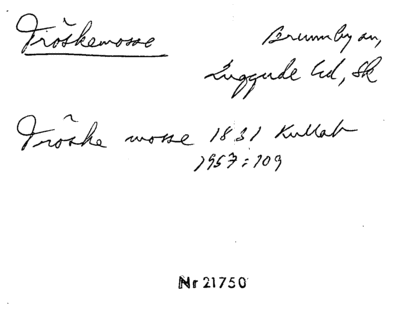 Tröskemosse
Brunnby sn,
Luggude hd, Sk
Tröske mosse 1831 Kullab
1957:109
Nr 21750